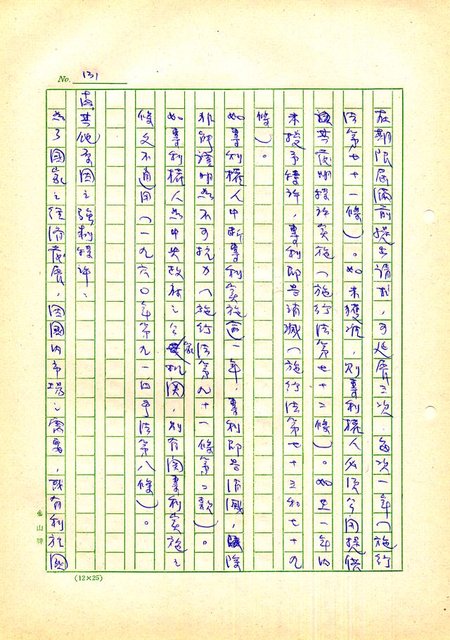 No. 131
在期限屆滿前提出請求,可延展三次,每次一年(施行
法第七十一條)。如未獲准,則專利權人必須公開提供
該其發明授許實施(施行法第七十二條)。如是一年內
未授予授許,專利即告消滅(施行法第七十三和七十九
條)。
如專利權人中斷專利實施逾一年,專利即告消滅,除
非能證明為不可抗力(施行法第九十一條第二款)。
如專利權人為中央政府之公家機関,則有関專利實施之
條文不適用(一九六〇年第九一四号法第八條)。
3. 其他原因之強制授許:
為了國家之經濟發展,因國內市場之需要,或有利於國
金山牌
(12×25)